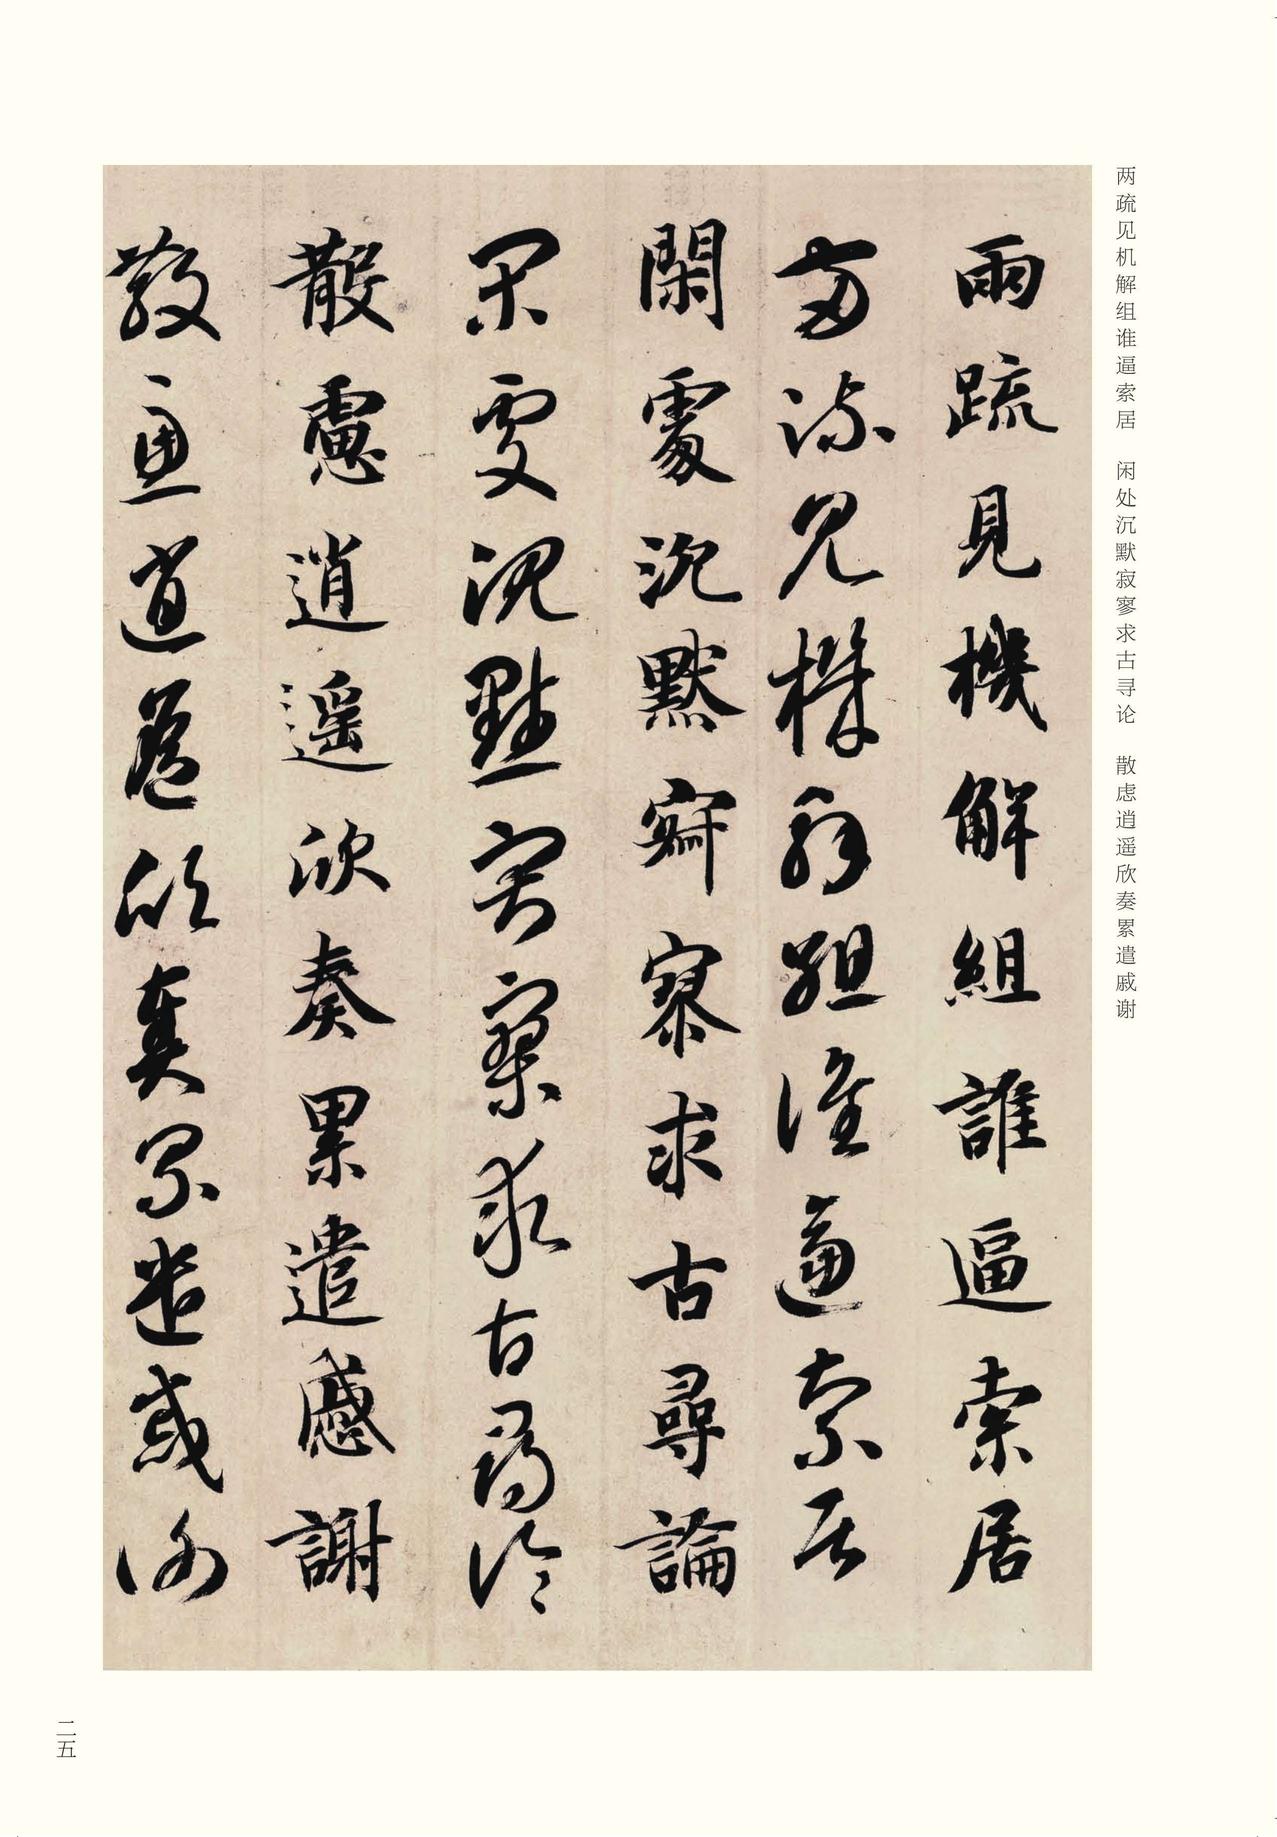 两疏见机解组谁逼索居 闲处沉默寂寥求古寻论 散虑逍遥欣奏累遣戚谢
兩疏見機解組誰逼索居
兩疏見機解組誰逼索居
閑處沉默寂寥求古尋論
閑處沉默寂寥求古尋論
散慮逍遥欣奏累遣慼謝
散慮逍遥欣奏累遣慼謝
二五